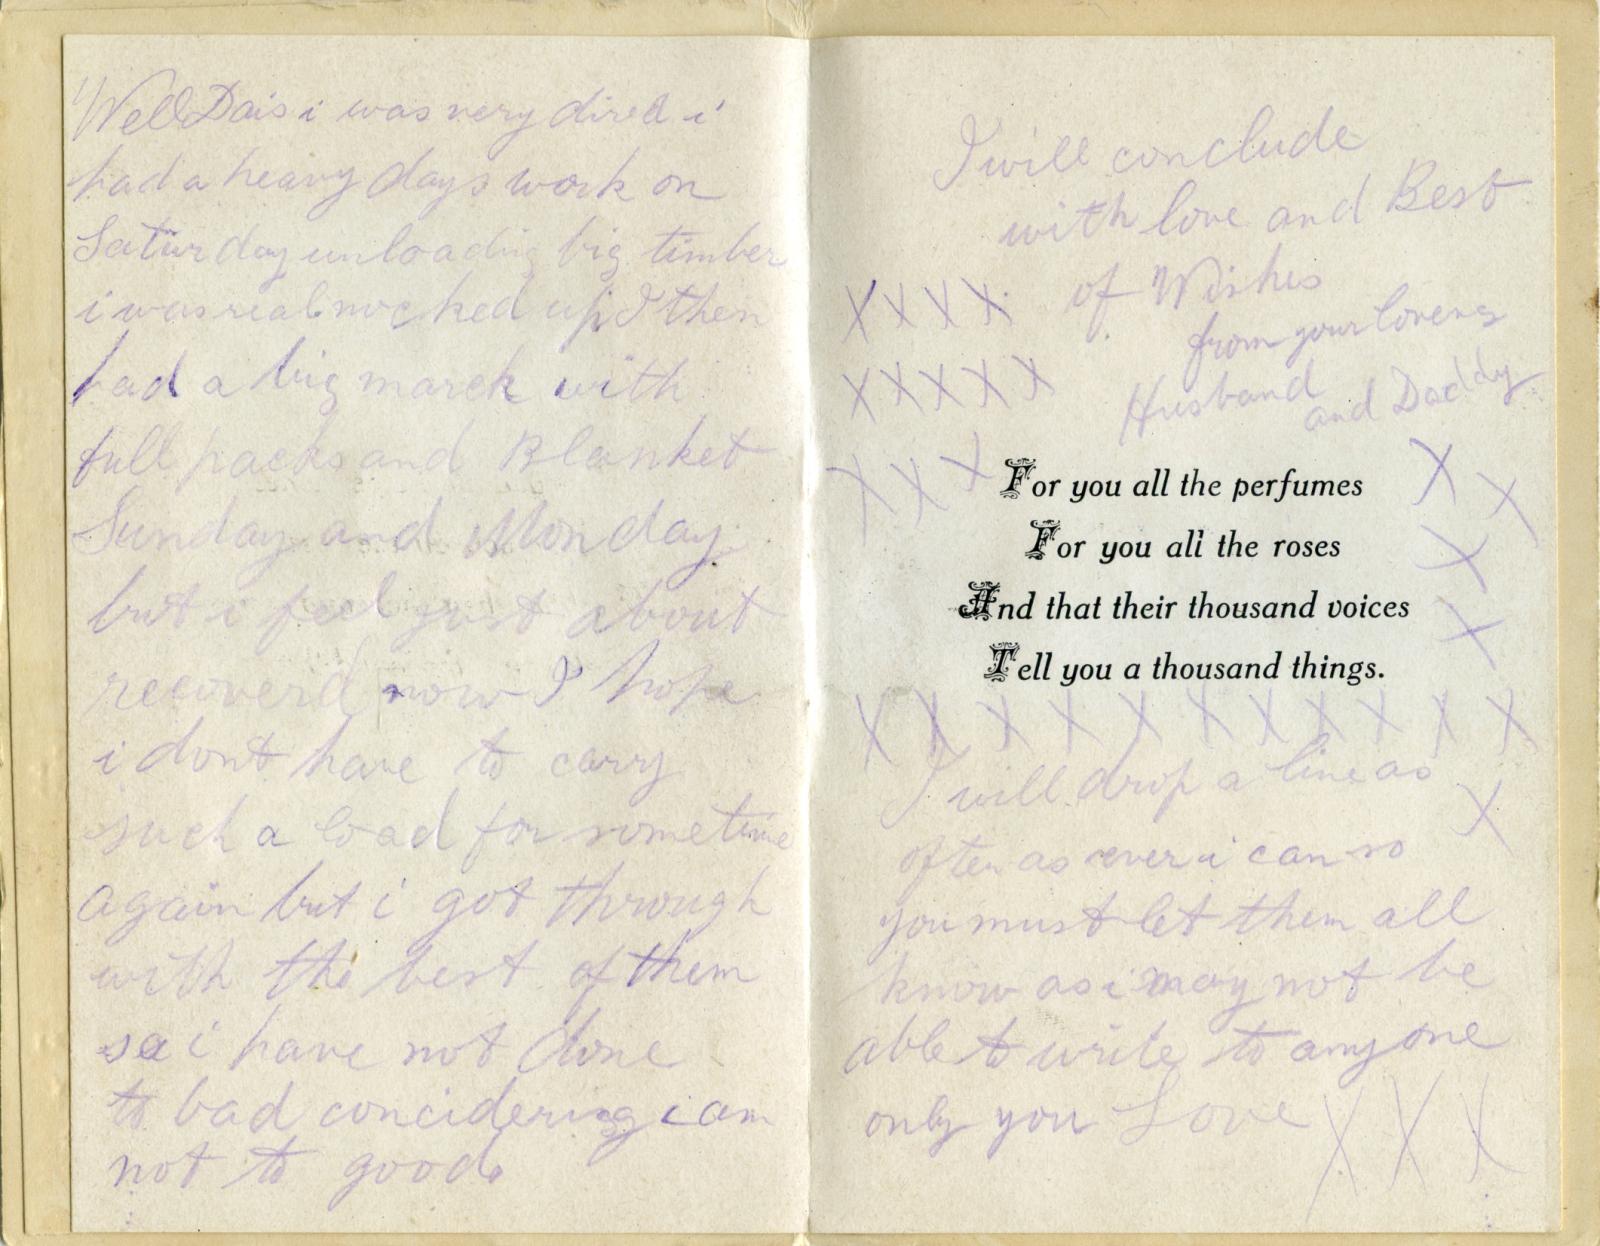 Well Dais i was very dired i
had a heavy days work on
Saturday unloading big timber
i was real nocked up I then
had a big march with
full packs and Blanket
Sunday and Monday
but i feel just about
recoverd now I hope
i dont have to carry
such a load for sometime
again but i got through
with the best of them
so i have not done
to bad concidering i am
not to good
I will conclude
with love and Best
X X X X of Wishes
from your loveing
X X X X X Husband
and Daddy
X X X
For you all the perfumes X X
For you all the roses X
And that their thousand voices X
Tell you a thousand things.
X X X X X X X X X X
I will drop a line as
X
often as ever i can so
you must let them all
know as i may not be
able to write to anyone
only you Love X X X